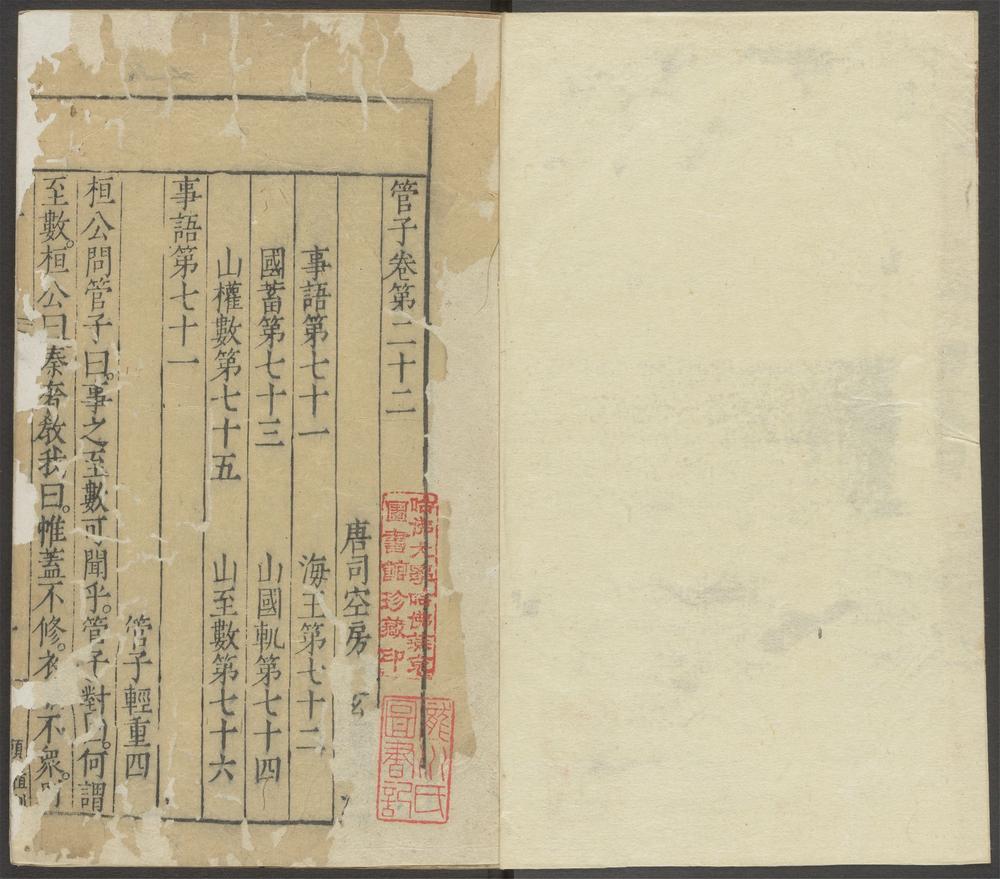 管子卷第二十二
唐司空房玄
事語第七十一 海王第七十二
國蓄第七十三 山國軌第七十四
山權數第七十五 山至數第七十六
事語第七十一
管子輕重四
桓公問管子曰。事之至數可聞乎。管子對曰。何謂
至數。桓公曰秦奢教我曰。帷蓋不修。衣不衆。則
哈佛大學哈佛燕京
圖書館珍藏印
圖書記